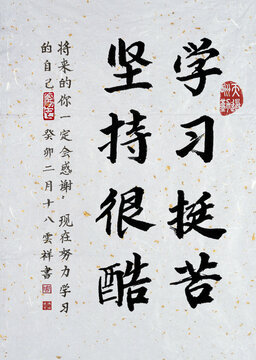 学习挺苦
坚持很酷
将来的你一定会感谢,现在努力学习
的自己 癸卯二月十八雲祥書